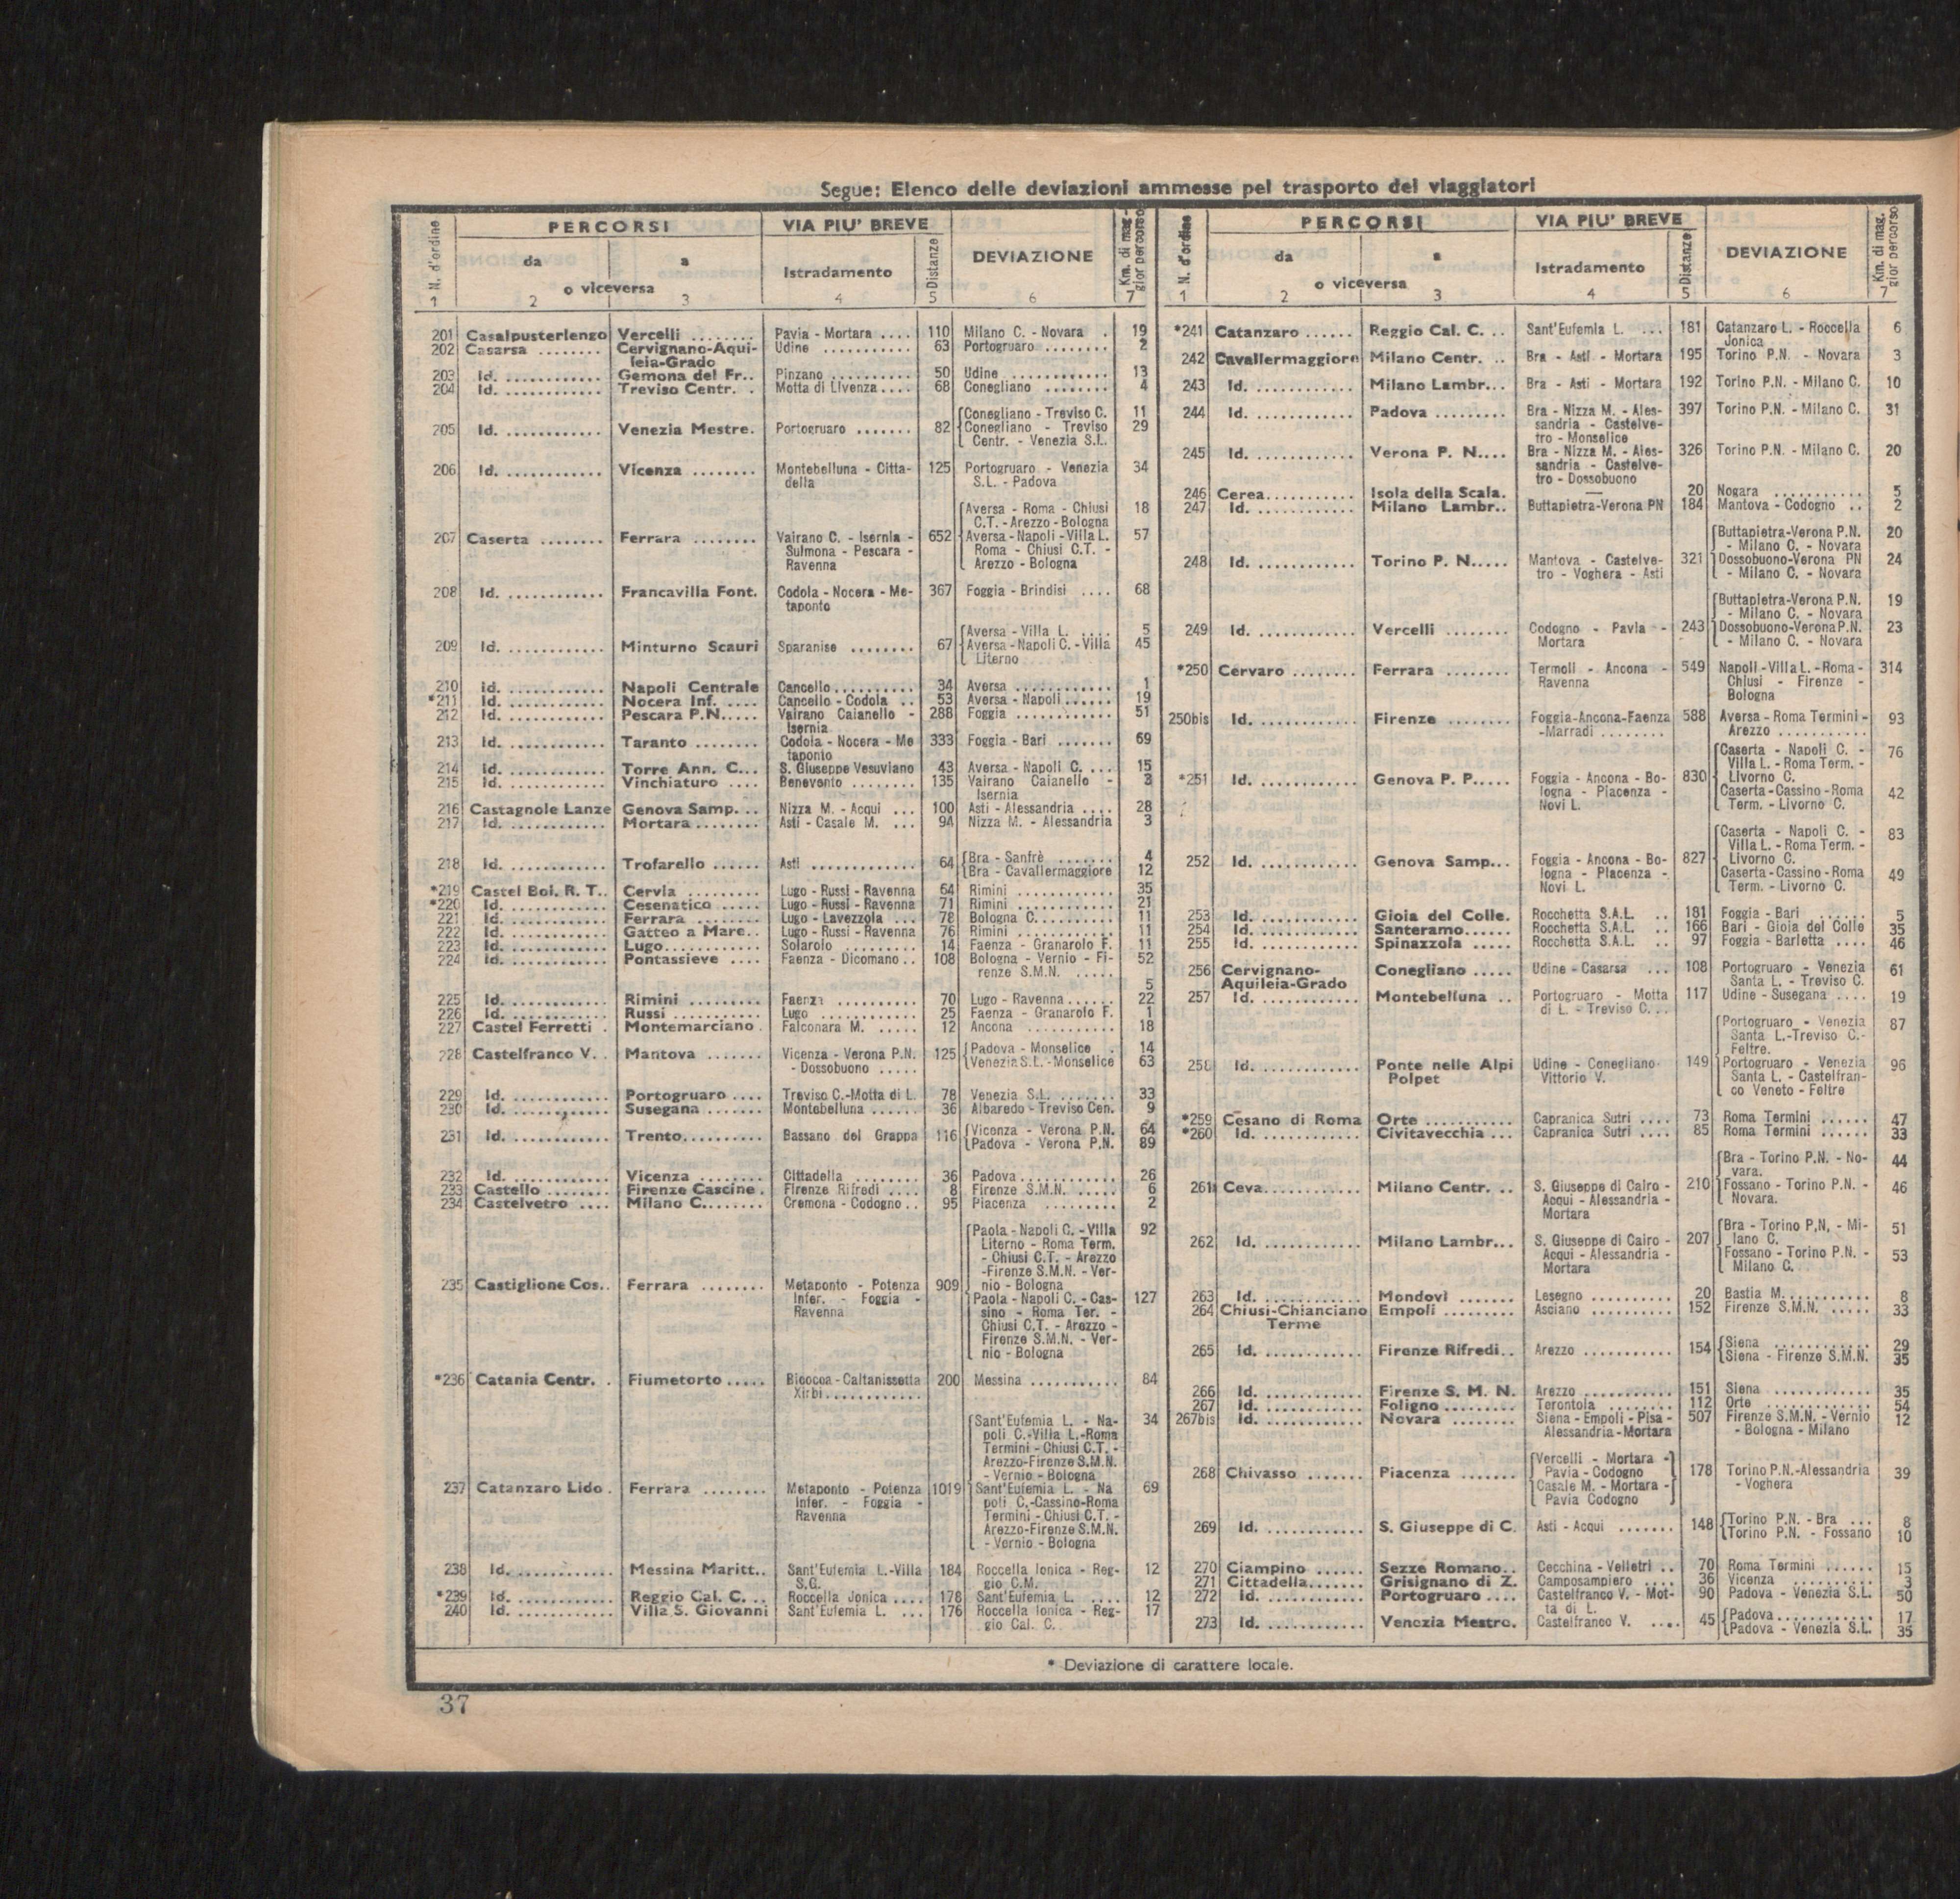 Segue: Elenco delle deviazioni ammesse pel trasporto dei viaggiatori
N. d'ordine PERCORSI VIA PIU' BREVE DEVIAZIONE Km. di mag-gior percorso
da a Istradamento Distanze
o viceversa
1 2 3 4 5 6 7
201 Casalpusterlengo Vercelli ........ Pavia - Mortara .... 110 Milano C. - Novara . 19
202 Casarsa ........ Cervignano-Aqui- Udine ........... 63 Portogruaro ........ 2
leia-Grado
203 Id. ............ Gemona del Fr.. Pinzano .......... 50 Udine ............ 13
204 Id. ............ Treviso Centr. . Motta di Livenza.... 68 Conegliano ........ 4
{Conegliano - Treviso C. 11
205 Id. ............ Venezia Mestre. Portogruaro ....... 82 {Conegliano - Treviso 29
Centr. - Venezia S.L.
206 Id. ............ Vicenza ........ Montebelluna - Citta- 125 Portogruaro - Venezia 34
della S.L. - Padova
{Aversa - Roma - Chiusi 18
C.T. - Arezzo - Bologna
207 Caserta ........ Ferrara ........ Vairano C. - Isernia - 652 Aversa - Napoli - Villa L. 57
Sulmona - Pescara - Roma - Chiusi C.T. -
Ravenna Arezzo - Bologna
208 Id. ............ Francavilla Font. Codola - Nocera - Me- 367 Foggia - Brindisi .... 68
taponto
{Aversa - Villa L. .... 5
209 Id. ............ Minturno Scauri Sparanise ........ 67 {Aversa - Napoli C. - Villa 45
Literno
210 Id. ............ Napoli Centrale Cancello.......... 34 Aversa ............ 1
*211 Id. ............ Nocera Inf. .... Cancello - Codola .. 53 Aversa - Napoli...... 19
212 Id. ............ Pescara P.N..... Vairano Caianello - 288 Foggia ............ 51
Isernia
213 Id. ............ Taranto ........ Codola - Nocera - Me 333 Foggia - Bari ....... 69
taponto
214 Id. ............ Torre Ann. C... S. Giuseppe Vesuviano 43 Aversa - Napoli C. ... 15
215 Id. ............ Vinchiaturo .... Benevento ........ 135 Vairano Caianello - 3
Isernia
216 Castagnole Lanze Genova Samp. .. Nizza M. - Acqui ... 100 Asti - Alessandria .... 28
217 Id. ............ Mortara ........ Asti - Casale M. ... 94 Nizza M. - Alessandria 3
218 Id. ............ Trofarello ...... Asti ............ 64 {Bra - Sanfrè ....... 4
{Bra - Cavallermaggiore 12
*219 Castel Bol. R. T.. Cervia ......... Lugo - Russi - Ravenna 64 Rimini ............ 35
*220 Id. ............ Cesenatico ..... Lugo - Russi - Ravenna 71 Rimini ............ 21
221 Id. ............ Ferrara ........ Lugo - Lavezzola ... 78 Bologna C.......... 11
222 Id. ............ Gatteo a Mare.. Lugo - Russi - Ravenna 76 Rimini ............ 11
223 Id. ............ Lugo............ Solarolo ......... 14 Faenza - Granarolo F. 11
224 Id. ............ Pontassieve .... Faenza - Dicomano.. 108 Bologna - Vernio - Fi- 52
renze S.M.N. .....
5
225 Id. ............ Rimini ......... Faenza .......... 70 Lugo - Ravenna...... 22
226 Id. ............ Russi ........... Lugo ............ 25 Faenza - Granarolo F. 1
227 Castel Ferretti . Montemarciano . Falconara M. ..... 12 Ancona ........... 18
228 Castelfranco V. . Mantova ....... Vicenza - Verona P.N. 125 {Padova - Monselice . 14
- Dossobuono ..... {Venezia S.L. - Monselice 63
229 Id. ............ Portogruaro .... Treviso C.-Motta di L. 78 Venezia S.L. ....... 33
230 Id. ............ Susegana ....... Montebelluna ...... 36 Albaredo - Treviso Cen. 9
231 Id. ............ Trento.......... Bassano del Grappa 116 {Vicenza - Verona P.N. 64
{Padova - Verona P.N. 89
232 Id. ............ Vicenza ........ Cittadella ........ 36 Padova............ 26
233 Castello ........ Firenze Cascine. Firenze Rifredi .... 8 Firenze S.M.N. ..... 6
234 Castelvetro .... Milano C........ Cremona - Codogno.. 95 Piacenza ......... 2
{Paola - Napoli C. - Villa 92
Literno - Roma Term.
- Chiusi C.T. - Arezzo
-Firenze S.M.N. - Ver-
235 Castiglione Cos.. Ferrara ........ Metaponto - Potenza 909 nio - Bologna
Infer. - Foggia - Paola - Napoli C. - Cas- 127
Ravenna sino - Roma Ter. -
Chiusi C.T. - Arezzo -
Firenze S.M.N. - Ver-
nio - Bologna
*236 Catania Centr. . Fiumetorto ..... Bicocca - Caltanissetta 200 Messina ........... 84
Xirbi............
{Sant'Eufemia L. - Na- 34
poli C.-Villa L.-Roma
Termini - Chiusi C.T. -
Arezzo-Firenze S.M.N.
- Vernio - Bologna
237 Catanzaro Lido . Ferrara ........ Metaponto - Potenza 1019 Sant'Eufemia L. - Na 69
Infer. - Foggia - poli C.-Cassino-Roma
Ravenna Termini - Chiusi C.T. -
Arezzo-Firenze S.M.N.
- Vernio - Bologna
238 Id. ............ Messina Maritt.. Sant'Eufemia L.-Villa 184 Roccella Ionica - Reg- 12
S.G. gio C.M.
*239 Id. ............ Reggio Cal. C. .. Roccella Jonica .... 178 Sant'Eufemia L. .... 12
240 Id. ............ Villa S. Giovanni Sant'Eufemia L. ... 176 Roccella Ionica - Reg- 17
gio Cal. C.
N. d'ordine PERCORSI VIA PIU' BREVE DEVIAZIONE Km. di mag. gior percorso
da a Istradamento Distanze
o viceversa
1 2 3 4 5 6 7
*241 Catanzaro ...... Reggio Cal. C. .. Sant'Eufemia L. ... 181 Catanzaro L. - Roccella 6
Jonica
242 Cavallermaggiore Milano Centr. .. Bra - Asti - Mortara 195 Torino P.N. - Novara 3
243 Id. ............ Milano Lambr... Bra - Asti - Mortara 192 Torino P.N. - Milano C. 10
244 Id. ............ Padova ......... Bra - Nizza M. - Ales- 397 Torino P.N. - Milano C. 31
sandria - Castelve-
tro - Monselice
245 Id. ............ Verona P. N.... Bra - Nizza M. - Ales- 326 Torino P.N. - Milano C. 20
sandria - Castelve-
tro - Dossobuono
246 Cerea........... Isola della Scala. — 20 Nogara ........... 5
247 Id. ............ Milano Lambr.. Buttapietra-Verona PN 184 Mantova - Codogno .. 2
{Buttapietra-Verona P.N. 20
- Milano C. - Novara
248 Id. ............ Torino P. N..... Mantova - Castelve- 321 Dossobuono-Verona PN 24
tro - Voghera - Asti - Milano C. - Novara
{Buttapietra-Verona P.N. 19
- Milano C. - Novara
249 Id. ............ Vercelli ........ Codogno - Pavia - 243 Dossobuono-Verona P.N. 23
Mortara - Milano C. - Novara
*250 Cervaro ........ Ferrara ........ Termoli - Ancona - 549 Napoli - Villa L. - Roma - 314
Ravenna Chiusi - Firenze -
Bologna
250bis Id. ............ Firenze ........ Foggia-Ancona-Faenza 588 Aversa - Roma Termini - 93
-Marradi ........ Arezzo ...........
{Caserta - Napoli C. - 76
Villa L. - Roma Term. -
*251 Id. ............ Genova P. P..... Foggia - Ancona - Bo- 830 Livorno C.
logna - Piacenza - Caserta - Cassino - Roma 42
Novi L. Term. - Livorno C.
{Caserta - Napoli C. - 83
Villa L. - Roma Term. -
252 Id. ............ Genova Samp... Foggia - Ancona - Bo- 827 Livorno C.
logna - Piacenza - Caserta - Cassino - Roma 49
Novi L. Term. - Livorno C.
253 Id. ............ Gioia del Colle. Rocchetta S.A.L. .. 181 Foggia - Bari ...... 5
254 Id. ............ Santeramo...... Rocchetta S.A.L. .. 166 Bari - Gioia del Colle 35
255 Id. ............ Spinazzola ..... Rocchetta S.A.L. .. 97 Foggia - Barletta .... 46
256 Cervignano- Conegliano ..... Udine - Casarsa ... 108 Portogruaro - Venezia 61
Aquileia-Grado Santa L. - Treviso C.
257 Id. ............ Montebelluna .. Portogruaro - Motta 117 Udine - Susegana .... 19
di L. - Treviso C...
{Portogruaro - Venezia 87
Santa L.-Treviso C.-
Feltre.
258 Id. ............ Ponte nelle Alpi Udine - Conegliano- 149 Portogruaro - Venezia 96
Polpet Vittorio V. Santa L. - Castelfran-
co Veneto - Feltre
*259 Cesano di Roma Orte ........... Capranica Sutri .... 73 Roma Termini ...... 47
*260 Id. ............ Civitavecchia ... Capranica Sutri .... 85 Roma Termini ...... 33
{Bra - Torino P.N. - No- 44
vara.
261 Ceva............ Milano Centr. .. S. Giuseppe di Cairo - 210 Fossano - Torino P.N. - 46
Acqui - Alessandria - Novara.
Mortara
{Bra - Torino P.N. - Mi- 51
262 Id. ............ Milano Lambr... S. Giuseppe di Cairo - 207 lano C.
Acqui - Alessandria - Fossano - Torino P.N. - 53
Mortara Milano C.
263 Id. ............ Mondovì ....... Lesegno .......... 20 Bastia M........... 8
264 Chiusi-Chianciano Empoli ......... Asciano .......... 152 Firenze S.M.N. ..... 33
Terme
265 Id. ............ Firenze Rifredi.. Arezzo ........... 154 {Siena ............ 29
{Siena - Firenze S.M.N. 35
266 Id. ............ Firenze S. M. N. Arezzo ........... 151 Siena ............ 35
267 Id. ............ Foligno ......... Terontola ........ 112 Orte ............. 54
267bis Id. ............ Novara ........ Siena - Empoli - Pisa - 507 Firenze S.M.N. - Vernio 12
Alessandria - Mortara - Bologna - Milano
{Vercelli - Mortara -}
268 Chivasso ....... Piacenza ....... Pavia - Codogno 178 Torino P.N.-Alessandria 39
{Casale M. - Mortara -} - Voghera
Pavia Codogno
269 Id. ............ S. Giuseppe di C. Asti - Acqui ....... 148 {Torino P.N. - Bra ... 8
{Torino P.N. - Fossano 10
270 Ciampino ...... Sezze Romano.. Cecchina - Velletri .. 70 Roma Termini ...... 15
271 Cittadella....... Grisignano di Z. Camposampiero .... 36 Vicenza .......... 3
272 Id. ............ Portogruaro .... Castelfranco V. - Mot- 90 Padova - Venezia S.L. 50
ta di L.
273 Id. ............ Venezia Mestre. Castelfranco V. .... 45 {Padova............ 17
{Padova - Venezia S.L. 35
* Deviazione di carattere locale.
37